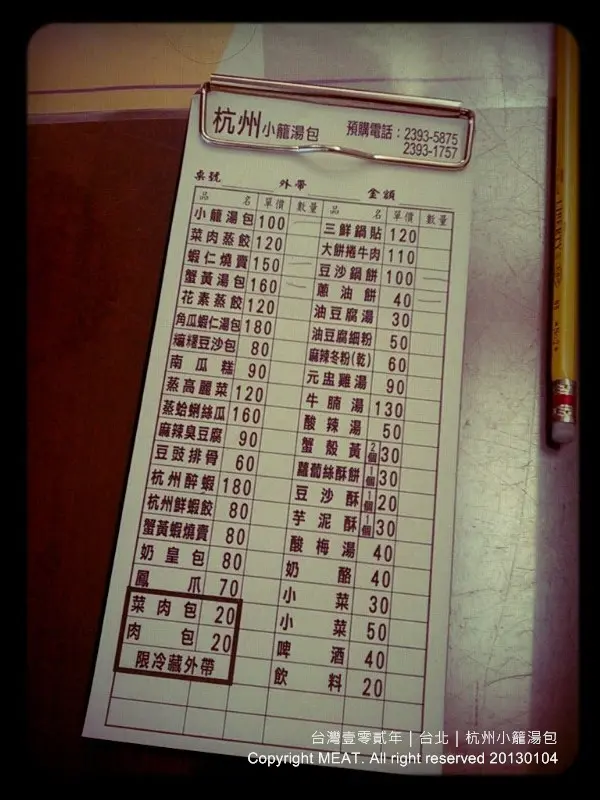 杭州小籠湯包 預購電話:2393-5875
2393-1757
桌號 外帶 金額
品名 單價 數量 品名 單價 數量
小籠湯包 100
菜肉蒸餃 120
蝦仁燒賣 150
蟹黃湯包 160
花素蒸餃 120
角瓜蝦仁湯包 180
褔袋豆沙包 80
南瓜糕 90
蒸高麗菜 120
蒸蛤蜊絲瓜 160
麻辣臭豆腐 90
豆豉排骨 60
杭州醉蝦 180
杭州鮮蝦餃 80
蟹黃蝦燒賣 80
奶皇包 80
鳳爪 70
菜肉包 20
肉包 20
限冷藏外帶
三鮮鍋貼 120
大餅捲牛肉 110
豆沙鍋餅 100
蔥油餅 40
油豆腐湯 30
油豆腐細粉 50
麻辣冬粉(乾) 60
元盅雞湯 90
牛腩湯 130
酸辣湯 50
蟹殼黃 2個 30
蘿蔔絲酥餅 1個 30
豆沙酥 1個 20
芋泥酥 1個 30
酸梅湯 40
奶酪 40
小菜 30
小菜 50
啤酒 40
飲料 20
台灣壹零貳年 | 台北 | 杭州小籠湯包
Copyright MEAT. All right reserved 20130104